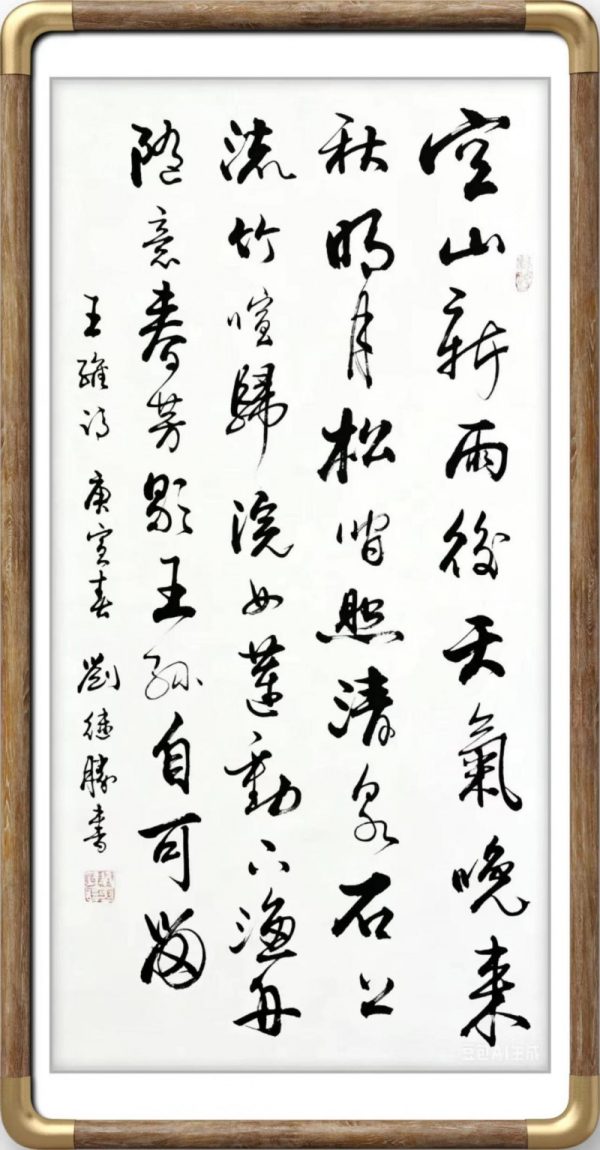 空山新雨後天氣晚来
秋明月松間照清泉石上
流竹喧歸浣女蓮動下漁舟
随意春芳歇王孫自可留
王維詩 庚寅春 劉德勝書
豆包AI生成